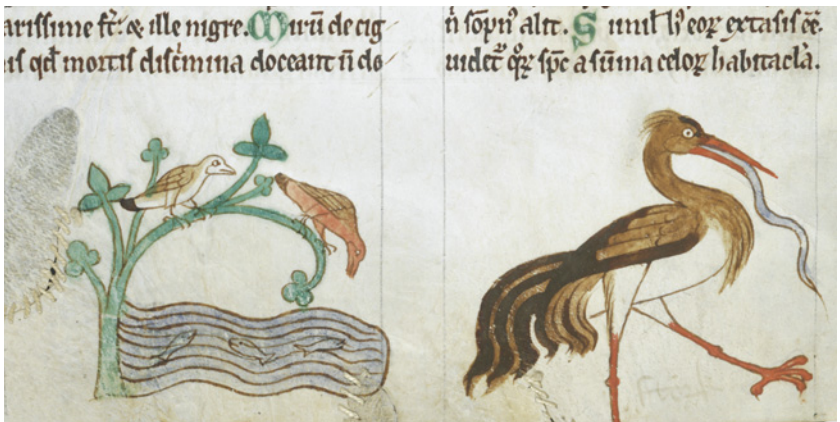 arissime st: & ille nigre. Mirū de cig
nis qđ mortis discͥmina doceant n̄ do
n̄ sōpn' alit. S imil' h' eoꝝ extasis cē.
uidet' qꝛ spc̄ a sūma celoꝝ habitacla.